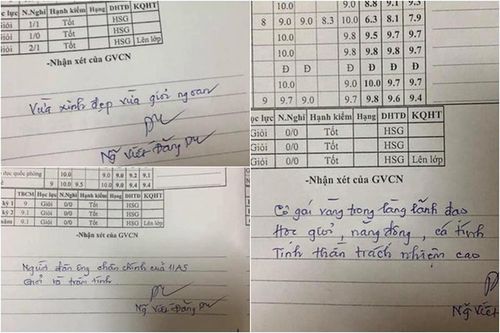 ọc lực N.Nghỉ Hạnh kiểm Hạng DHTĐ KQHT
Giỏi 1/1 Tốt HSG
Giỏi 1/0 Tốt HSG
Giỏi 2/1 Tốt HSG Lên lớp
-Nhận xét của GVCN
Vừa xinh đẹp vừa giỏi ngoan
Ng Viết Đăng Du
10.0 9.0 8.8 9.1 9.3
8 9.0 9.0 8.3 10.0 6.3 8.1 7.9
10.0 9.8 9.7 9.7
10.0 9.8 9.8 9.8
Đ Đ Đ Đ Đ
9.0 10.0 9.7 9.7
9 9.7 9.0 9.7 9.8 9.6 9.4
ọc lực N.Nghỉ Hạnh kiểm Hạng DHTĐ KQHT
Giỏi 0/0 Tốt HSG
Giỏi 0/0 Tốt HSG
Giỏi 0/0 Tốt HSG Lên lớp
-Nhận xét của GVCN
Cô gái vàng trong làng lãnh đạo
Học giỏi, năng động, cá tính
Tinh thần trách nhiệm cao
Ng Viết
dục quốc phòng 10.0 9.0 9.0 9.2 9.1
9 10.0 9.5 10.0
TBCM Học lực N.Nghỉ Hạnh kiểm Hạng DHTĐ KQHT
kỳ 1 9 Giỏi 0/0 Tốt HSG
kỳ 2 9.1 Giỏi 0/0 Tốt HSG
năm 9.1 Giỏi 0/0 Tốt HSG Lên lớp
-Nhận xét của GVCN
Người đàn ông chân chính của 11A5
Giỏi và trầm tính
Ng Viết Đăng Du